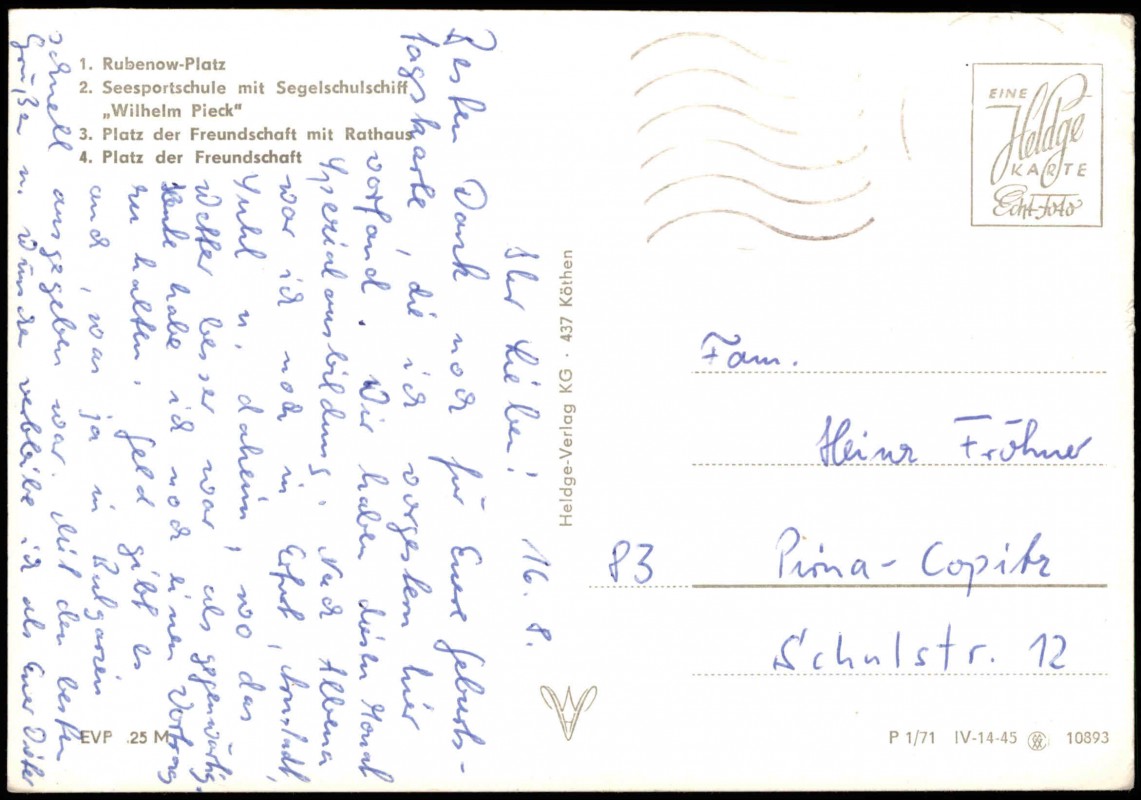 1. Rubenow-Platz
2. Seesportschule mit Segelschulschiff
„Wilhelm Pieck"
3. Platz der Freundschaft mit Rathaus
4. Platz der Freundschaft
Ihr Lieben! 16. 8.
Besten Dank noch für Eure Geburts-
tagskarte, die ich vorgestern hier
vorfand. Wir haben diesen Monat
Spezialausbildung. Nach Albena
war ich noch in Erfurt, Arnstadt,
Suhl u. daheim, wo das
Wetter besser war, als gegenwärtig.
Heute habe ich noch einen Vortrag
zu halten. Geld gibt es
und, was ja in Bulgarien
schnell ausgegeben war. Mit den besten
Grüßen u. Wünschen verbleibe ich als Euer Dieter
EVP .25 M
Heldge-Verlag KG · 437 Köthen
EINE
Heldge
KARTE
Echt-Foto
Fam.
Heinz Fröhner
83 Pirna-Copitz
Schulstr. 12
P 1/71 IV-14-45 10893